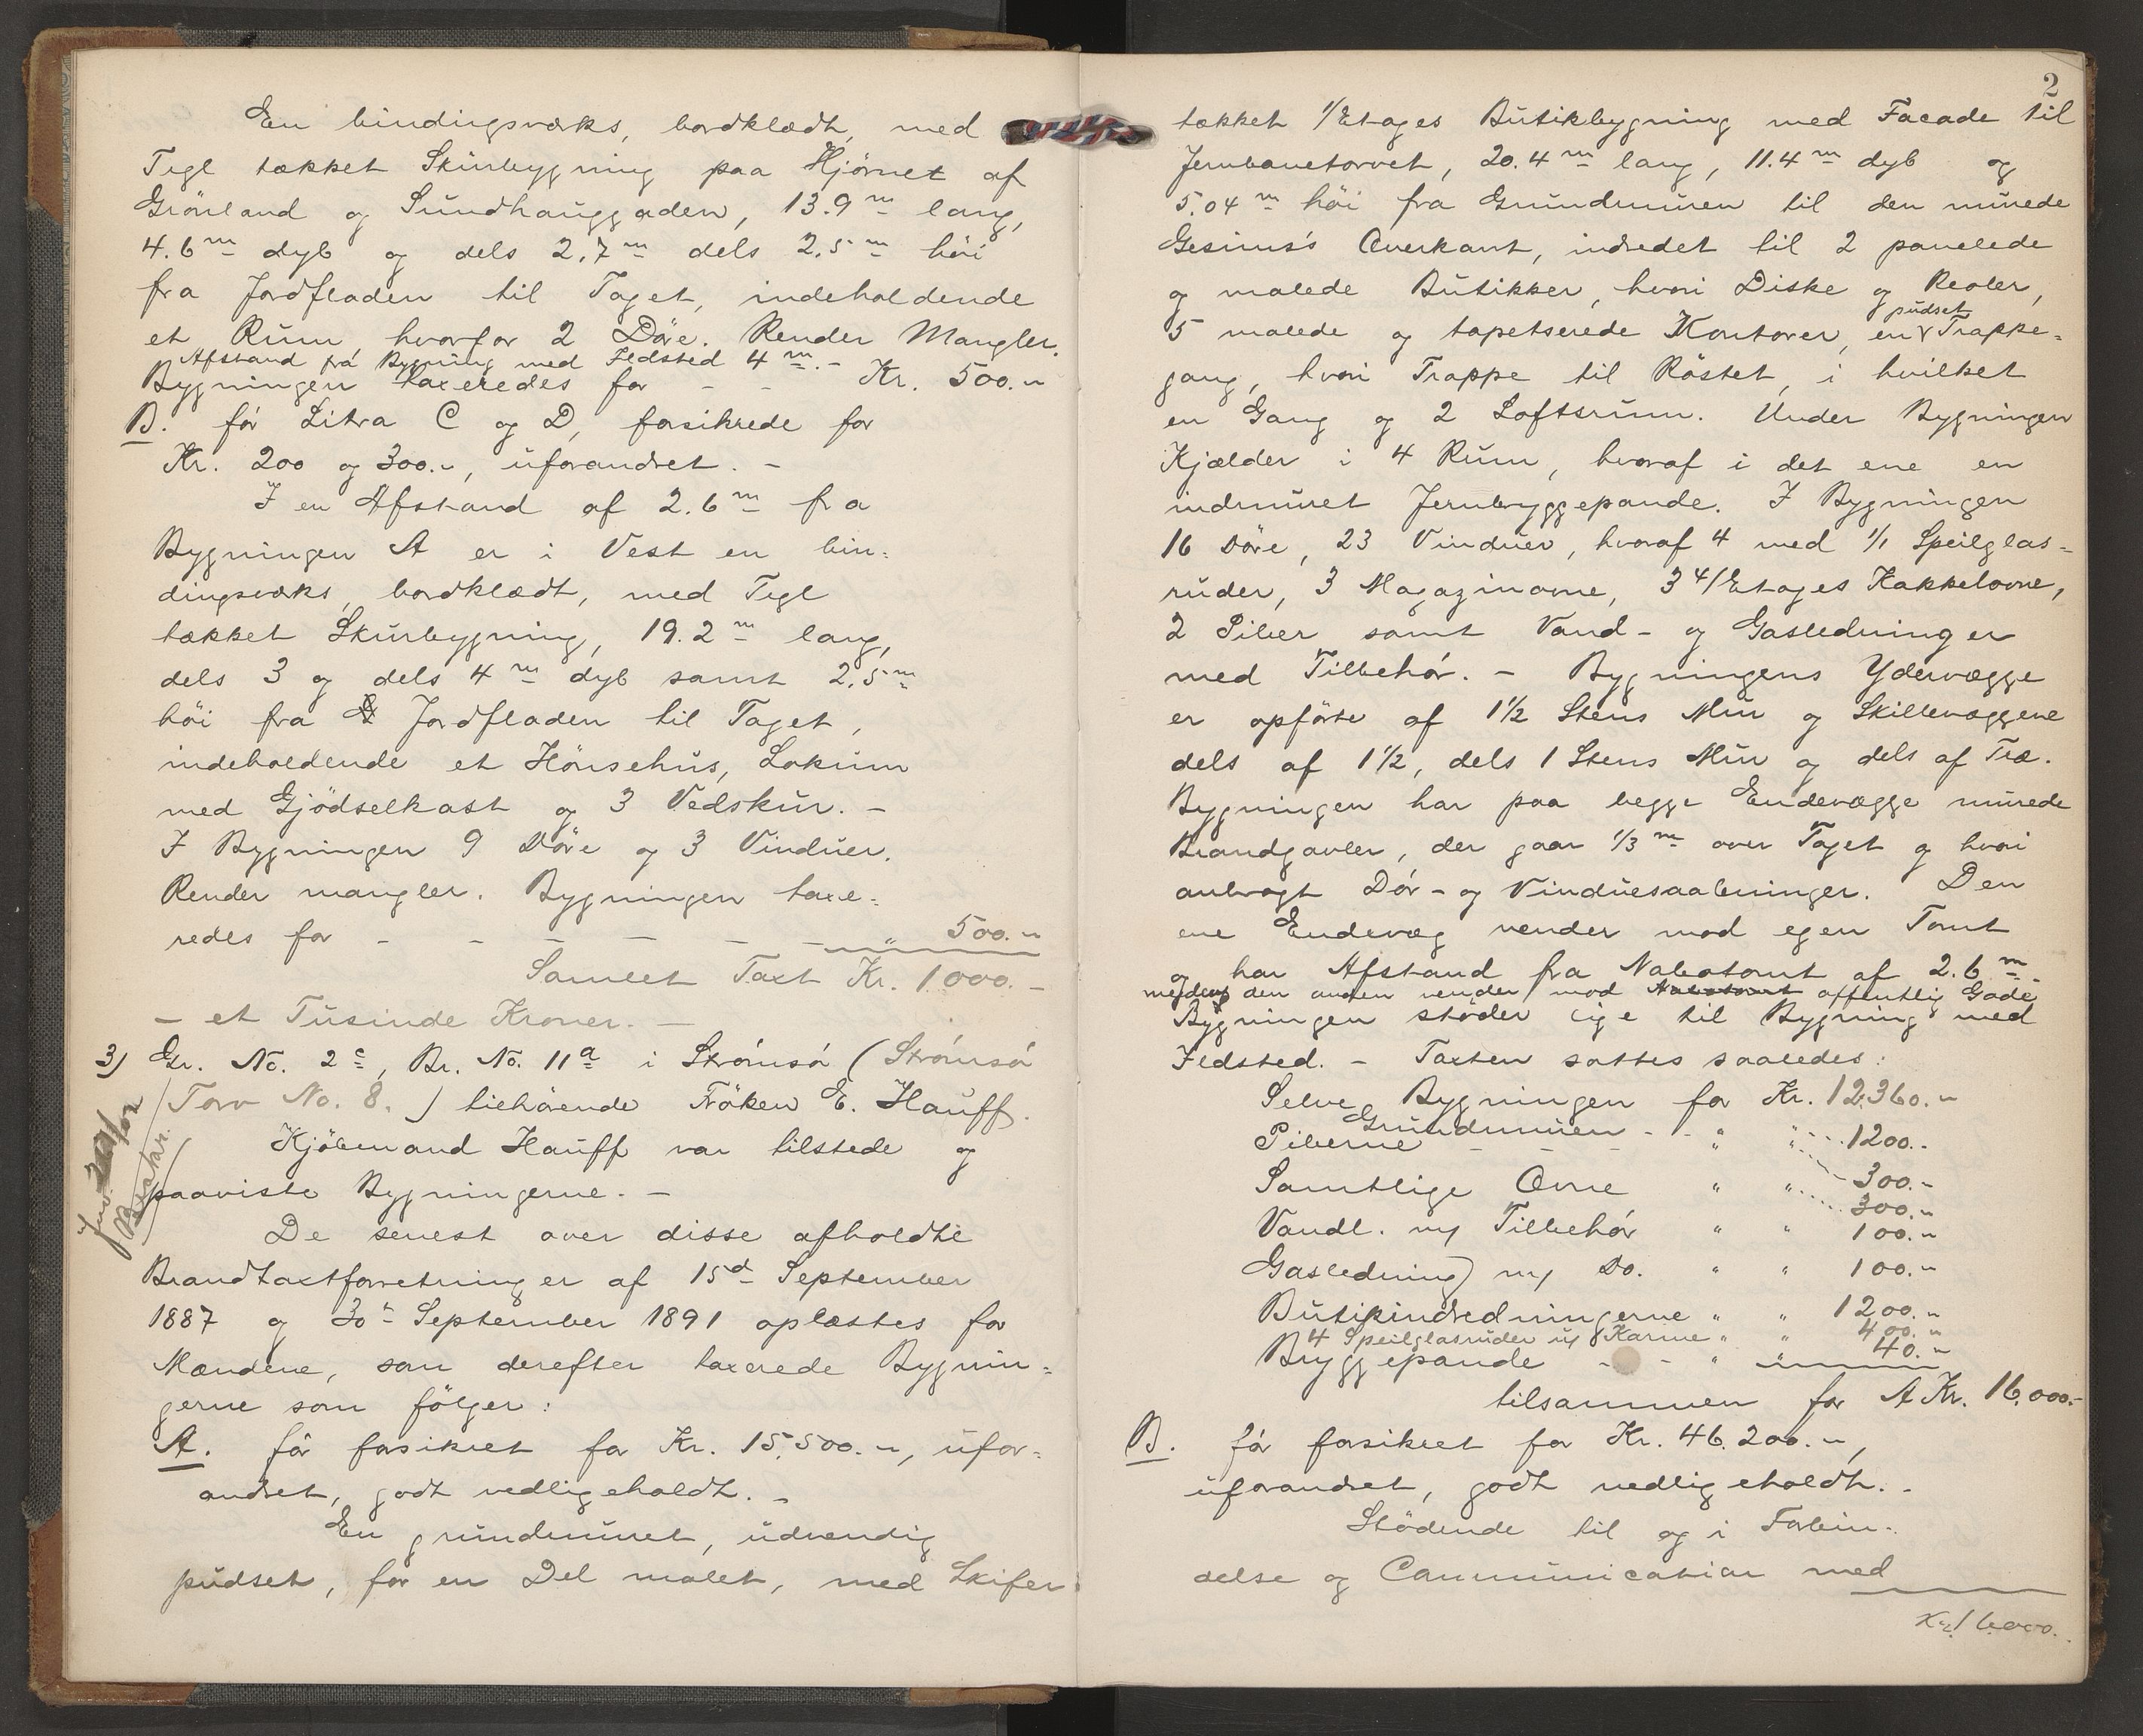 En bindingsværks, bordklædt, med
Tegl tækket Skurbygning paa Hjørnet af
Grönland og Sundhauggaden, 13.9 m lang,
4.6 m dyb og dels 2.7 m dels 2.5 m höi
fra Jordfladen til Taget, indeholdende
et Rum hvorfor 2 Döre. Render Mangler.
Afstand frá Bygning med Ildsted 4 m. -
Bygningen taxeredes for - - Kr. 500.-
B. för Litra C og D, forsikrede for
Kr. 200 og 300.-, uforandret. -
I en Afstand af 2.6 m fra
Bygningen A er i Vest en bin-
dingsværks, bordklædt, med Tegl
tækket Skurbygning, 19.2 m lang,
dels 3 og dels 4 m dyb samt 2.5 m
höi fra Jordfladen til Taget,
indeholdende et Hönsehus, Lokum
med Gjödselkast og 3 Vedskur. -
I Bygningen 9 Döre og 3 Vinduer.
Render mangler. Bygningen taxe-
redes for - - - - - - " 500.-
Samlet Taxt Kr. 1000.-
- et Tusinde Kroner. -
3) Gr. No. 2 c, Br. No. 11 a i Strömsö (Strömsö
Torv No. 8.) tilhörende Fröken E. Hauff.
Kjöbmand Hauff var tilstede og
paaviste Bygningerne. -
De senest over disse afholdte
Brandtaxtforretninger af 15d September
1887 og 30 September 1891 oplæstes for
Mændene, som derefter taxerede Bygnin-
gerne som fölger:
A. för forsikret for Kr. 15,500.-, ufor-
andret, godt vedligeholdt. -
En grundmuret, udvendig
pudset, for en Del malet, med Skifer
2
tækket 1/Etages Butikbygning med Facade til
Jernbanetorvet, 20.4 m lang, 11.4 m dyb og
5.04 m höi fra Grundmuren til den murede
Gesims's Overkant, indredet til 2 panelede
og malede Butikker, hvori Diske og Reoler,
5 malede og tapetserede Kontorer, en pudset Trappe-
gang, hvori Trappe til Röstet, i hvilket
en Gang og 2 Loftsrum. Under Bygningen
Kjælder i 4 Rum, hvoraf i det ene en
indmuret Jernbryggepande. I Bygningen
16 Döre, 23 Vinduer, hvoraf 4 med 1/1 Speilglas-
ruder, 3 Magazinovne, 3 4/Etages Kakkelovne,
2 Piber samt Vand- og Gasledninger
med Tilbehör. - Bygningens Ydervægge
er opförte af 1½ Stens Mur og Skillevæggene
dels af 1½, dels 1 Stens Mur og dels af Træ.
Bygningen har paa begge Endevægge murede
Brandgavler, der gaar 1/3 m over Taget og hvori
anbragt Dör- og Vinduesaabninger. Den
ene Endevæg vender mod egen Tomt
og har Afstand fra Nabotomt af 2.6 m
medens den anden vender mod Nabotomt offentlig Gade.
Bygningen stöder ige til Bygning med
Ildsted. - Taxten sattes saaledes:
Selve Bygningen for Kr. 12,360.-
Grundmuren - - " " 1200.-
Piberne - - - 300.-
Samtlige Ovne " " 300.-
Vandl. m/ Tilbehör " " 100.-
Gasledning m/ Do. " " 100.-
Butikindredningerne " " 1200.-
4 Speilglasruder m/ Karme " " 400.-
Bryggepande - - " " 40.-
tilsammen for A Kr. 16,000.-
B. för forsikret for Kr. 46,200.-,
uforandret, godt vedligeholdt. -
Stödende til og i Forbin-
delse og Communication med
Kr. 16000.